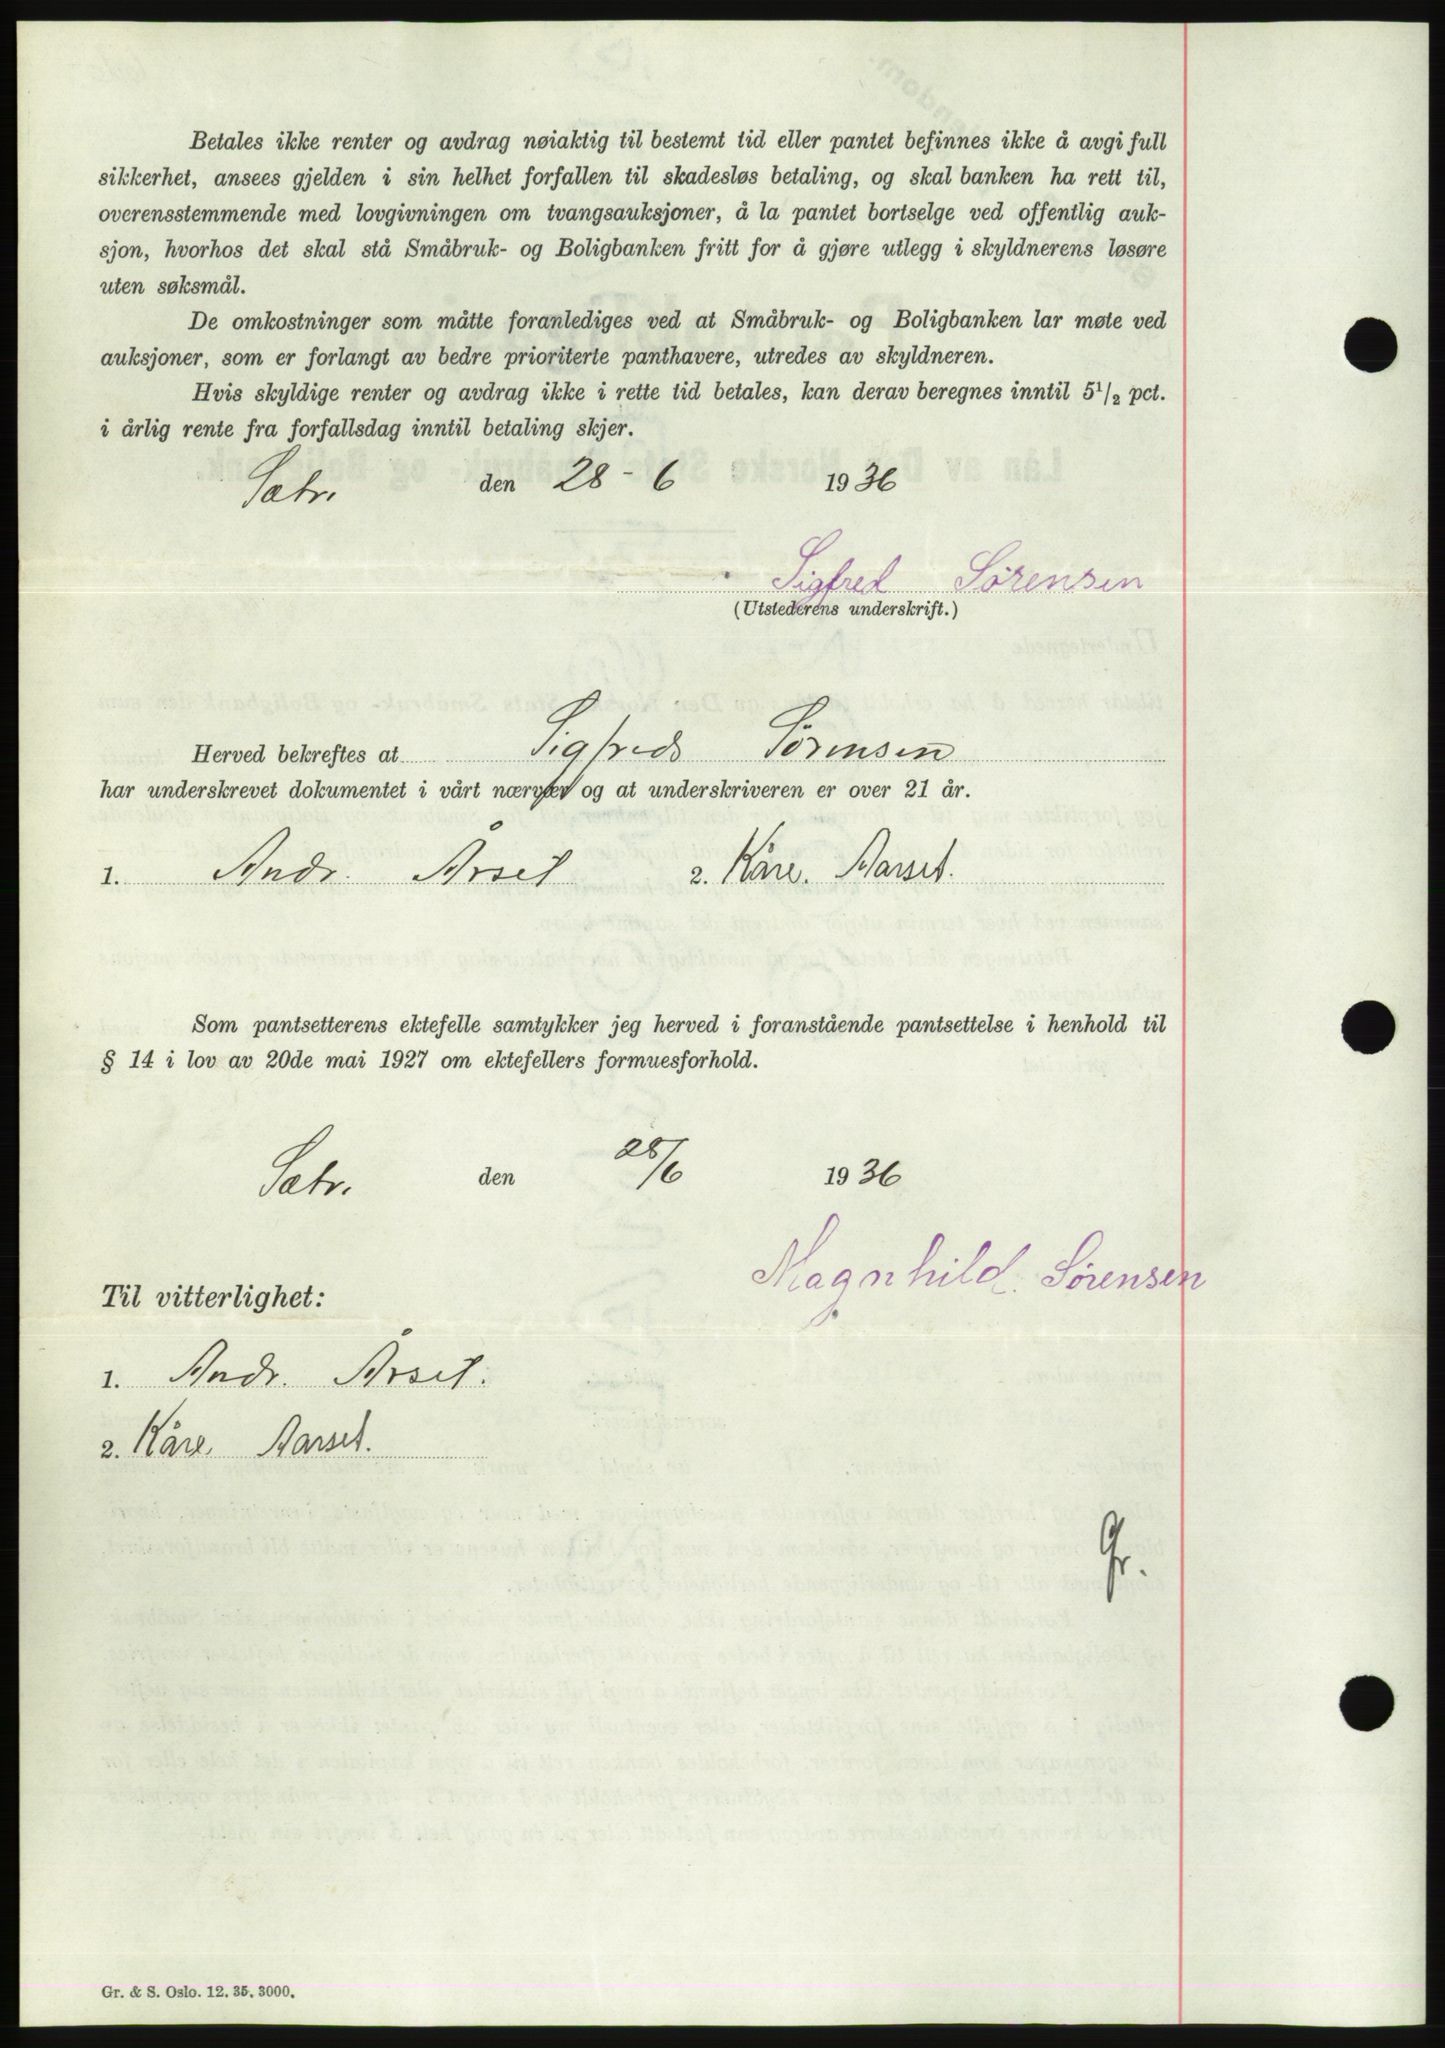 Betales ikke renter og avdrag nøiaktig til bestemt tid eller pantet befinnes ikke å avgi full
sikkerhet, ansees gjelden i sin helhet forfallen til skadesløs betaling, og skal banken ha rett til,
overensstemmende med lovgivningen om tvangsauksjoner, å la pantet bortselge ved offentlig auk-
sjon, hvorhos det skal stå Småbruk- og Boligbanken fritt for å gjøre utlegg i skyldnerens løsøre
uten søksmål.
De omkostninger som måtte foranlediges ved at Småbruk- og Boligbanken lar møte ved
auksjoner, som er forlangt av bedre prioriterte panthavere, utredes av skyldneren.
Hvis skyldige renter og avdrag ikke i rette tid betales, kan derav beregnes inntil 5 1/2 pct.
i årlig rente fra forfallsdag inntil betaling skjer.
Sætr. den 28-6 1936
Sigfred Sørensen
(Utstederens underskrift.)
Herved bekreftes at Sigfred Sørensen
har underskrevet dokumentet i vårt nærvær og at underskriveren er over 21 år.
1. Andr. Årset 2. Kåre. Aarset.
Som pantsetterens ektefelle samtykker jeg herved i foranstående pantsettelse i henhold til
§ 14 i lov av 20de mai 1927 om ektefellers formuesforhold.
Sætr. den 28/6 1936
Magnhild. Sørensen
Til vitterlighet:
1. Andr. Årset.
2. Kåre. Aarset.
Gr.
Gr. & S. Oslo. 12. 35. 3000.